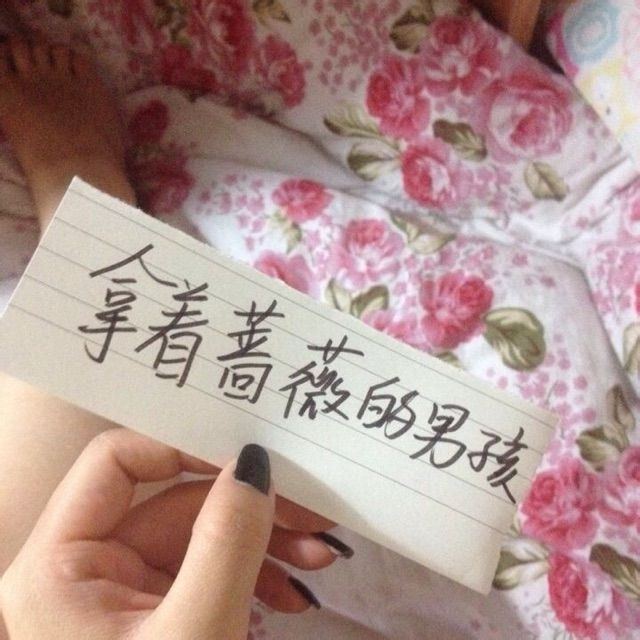 拿着蔷薇的男孩